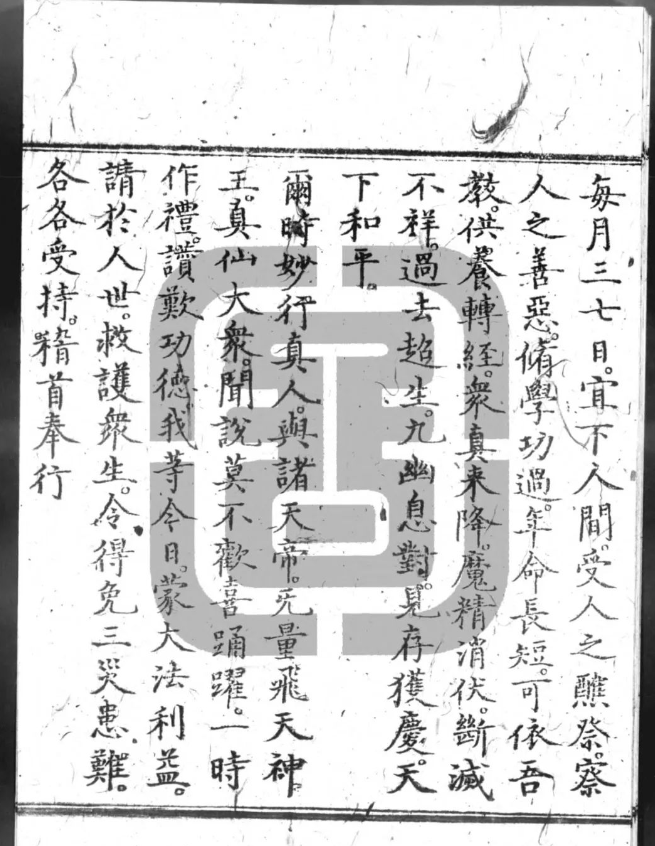 每月三七日。宜下人間。受人之醮祭。察
人之善惡。脩學功過。年命長短。可依吾
教。供養轉経。衆真来降。魔精消伏。斷滅
不祥。過去超生。九幽息對。見存獲慶。天
下和平。
爾時妙行真人。與諸天帝。无量飛天神
王。真仙大衆。聞說莫不歡喜踊躍。一時
作禮。讚歎功德。我等今日。蒙大法利益。
請於人世。救護衆生。令得免三災患難。
各各受持。稽首奉行